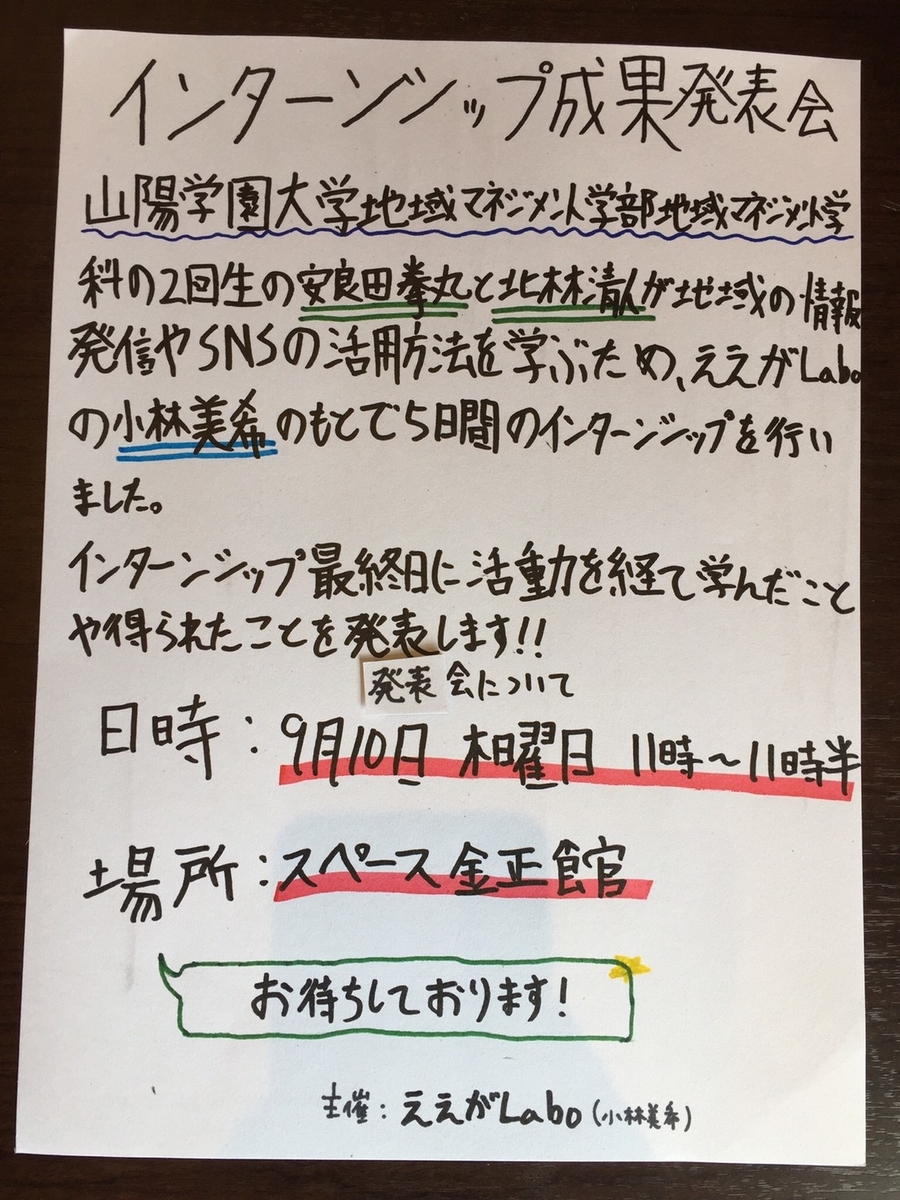 インターンシップ成果発表会
山陽学園大学地域マネジメント学部地域マネジメント学
科の2回生の安良田拳丸と北林清人が地域の情報
発信やSNSの活用方法を学ぶため、ええがLabo
の小林美希のもとで5日間のインターンシップを行い
ました。
インターンシップ最終日に活動を経て学んだこと
や得られたことを発表します!!
発表会について
日時:9月10日 木曜日 11時~11時半
場所:スペース金正館
お待ちしております!
主催:ええがLabo(小林美希)